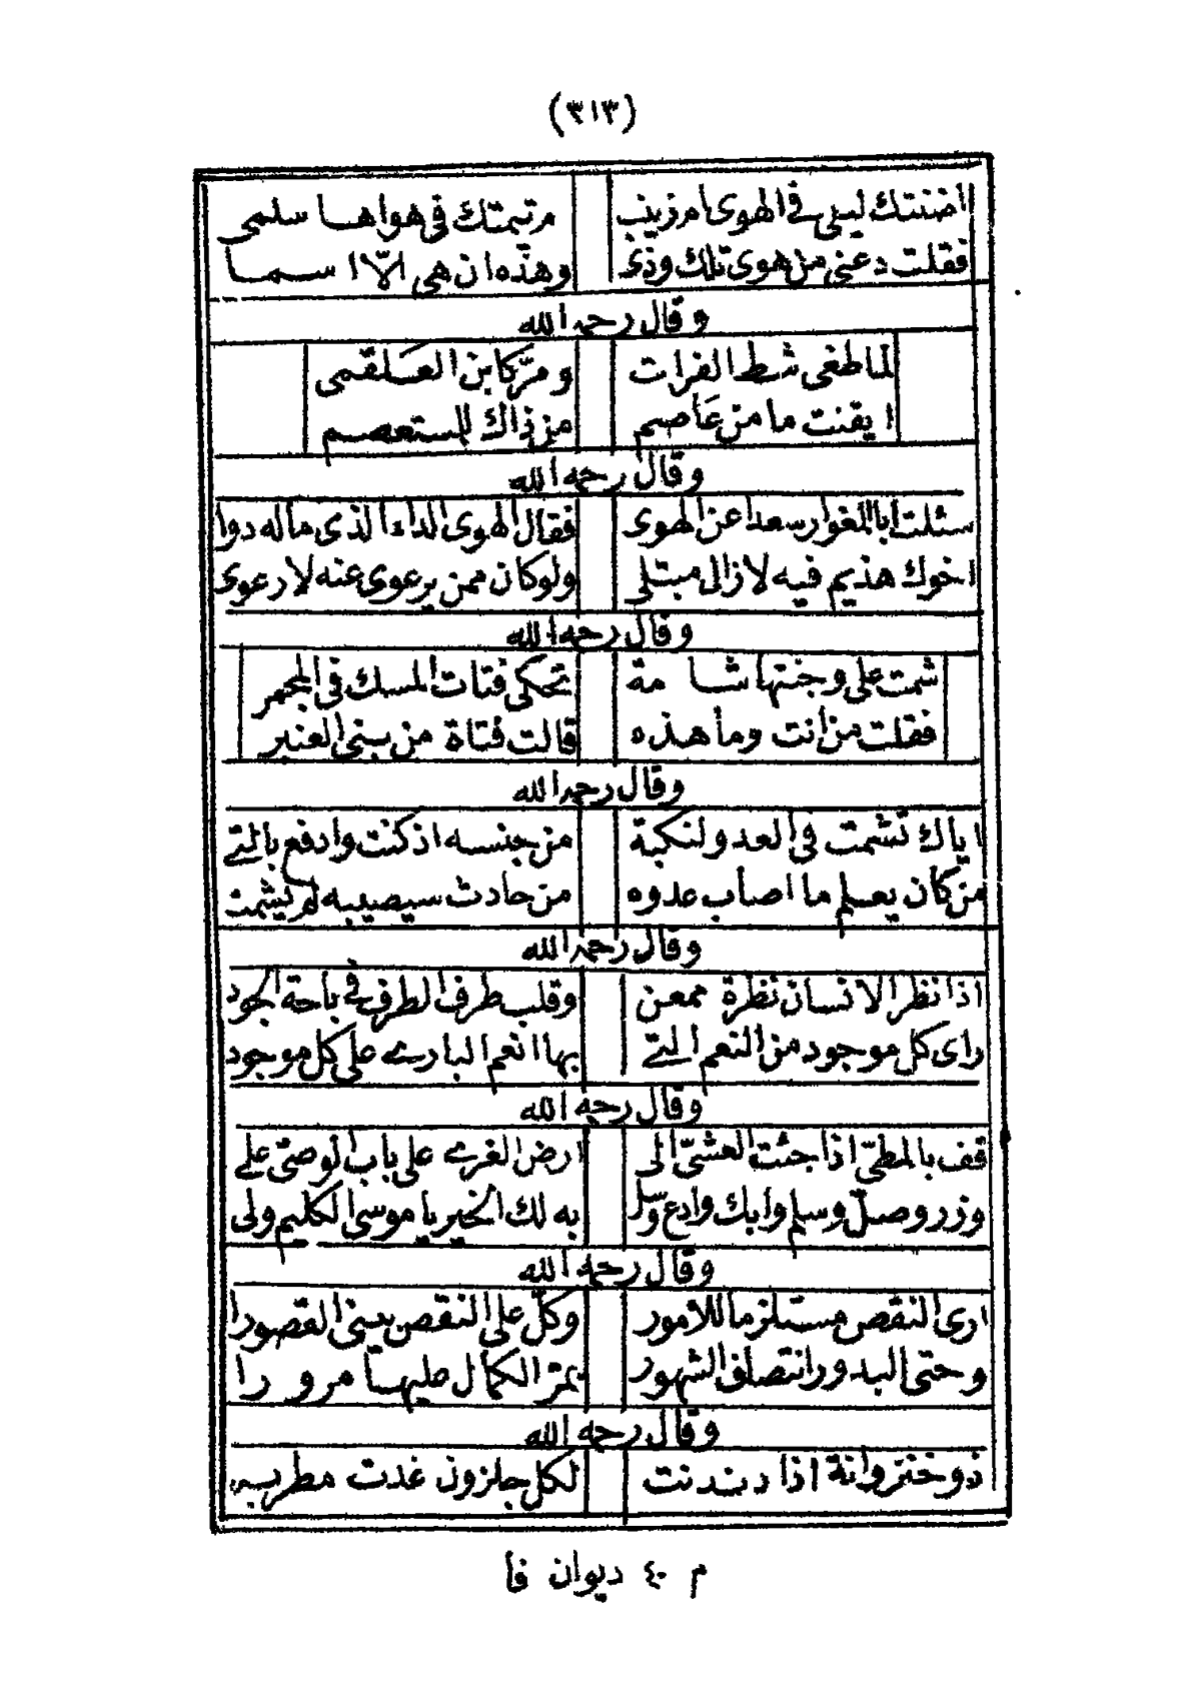 (٣١٣)
اضنتك ليلى في الهوى ام زينب ام تيمتك في هواها سلمى
فقلت دعنى من هوى تلك وذى وهذه ان هى الّا اسما
وقال رحمه الله
لما طغى شط الفرات ومرّ كابن العلقمى
ايقنت ما من عاصم من ذاك للمستعصم
وقال رحمه الله
سئلت أبا المغوار سعدا عن الهوى فقال الهوى الداء الذى ماله دوا
اخوك هذيم فيه لا زال مبتلى ولو كان ممن يرعوى عنه لارعوى
وقال رحمه الله
شمت على وجنتها شامة تحكى فتات المسك فى المجمر
فقلت من انت وما هذه قالت فتاة من بنى العنبر
وقال رحمه الله
اياك تشمت فى العدو لنكبة من جنسه اذ كنت وادفع بالتى
من كان يعلم ما اصاب عدوه من حادث سيصيبه لم يشمت
وقال رحمه الله
اذا نظر الانسان نظرة ممعن وقلب طرف الطرف في باحة الجود
راى كل موجود من النعم التى بها انعم البارى على كل موجود
وقال رحمه الله
قف بالمطىّ اذا جئت العشىّ الى ارض الغرى على باب الوصىّ على
وزر وصلّ وسلم وابك وادع وسل به لك الخير يا موسى الكليم ولى
وقال رحمه الله
ارى النقص مستلزما للأمور وكلّ على النقص يبنى القصورا
وحتى البدور انتصاف الشهور يمرّ الكمال عليها مرورا
وقال رحمه الله
ذو خنزوانة اذا دندنت لكل حلزون غدت مطربه
م ٤٠ ديوان فا